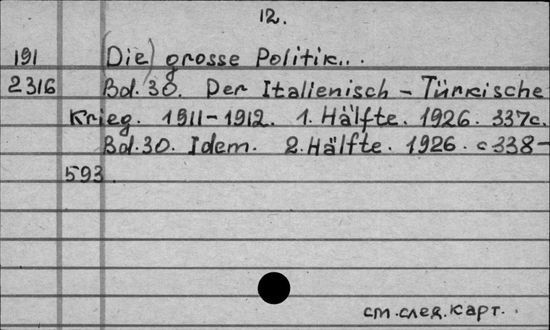 12.
191 (Die) grosse Politik...
2316 Bd. 30. Der Italienisch - Türkische
Krieg. 1911-1912. 1. Hälfte. 1926. 337c.
Bd. 30. Idem. 2. Hälfte. 1926. c 338-
593.
см. след. карт.